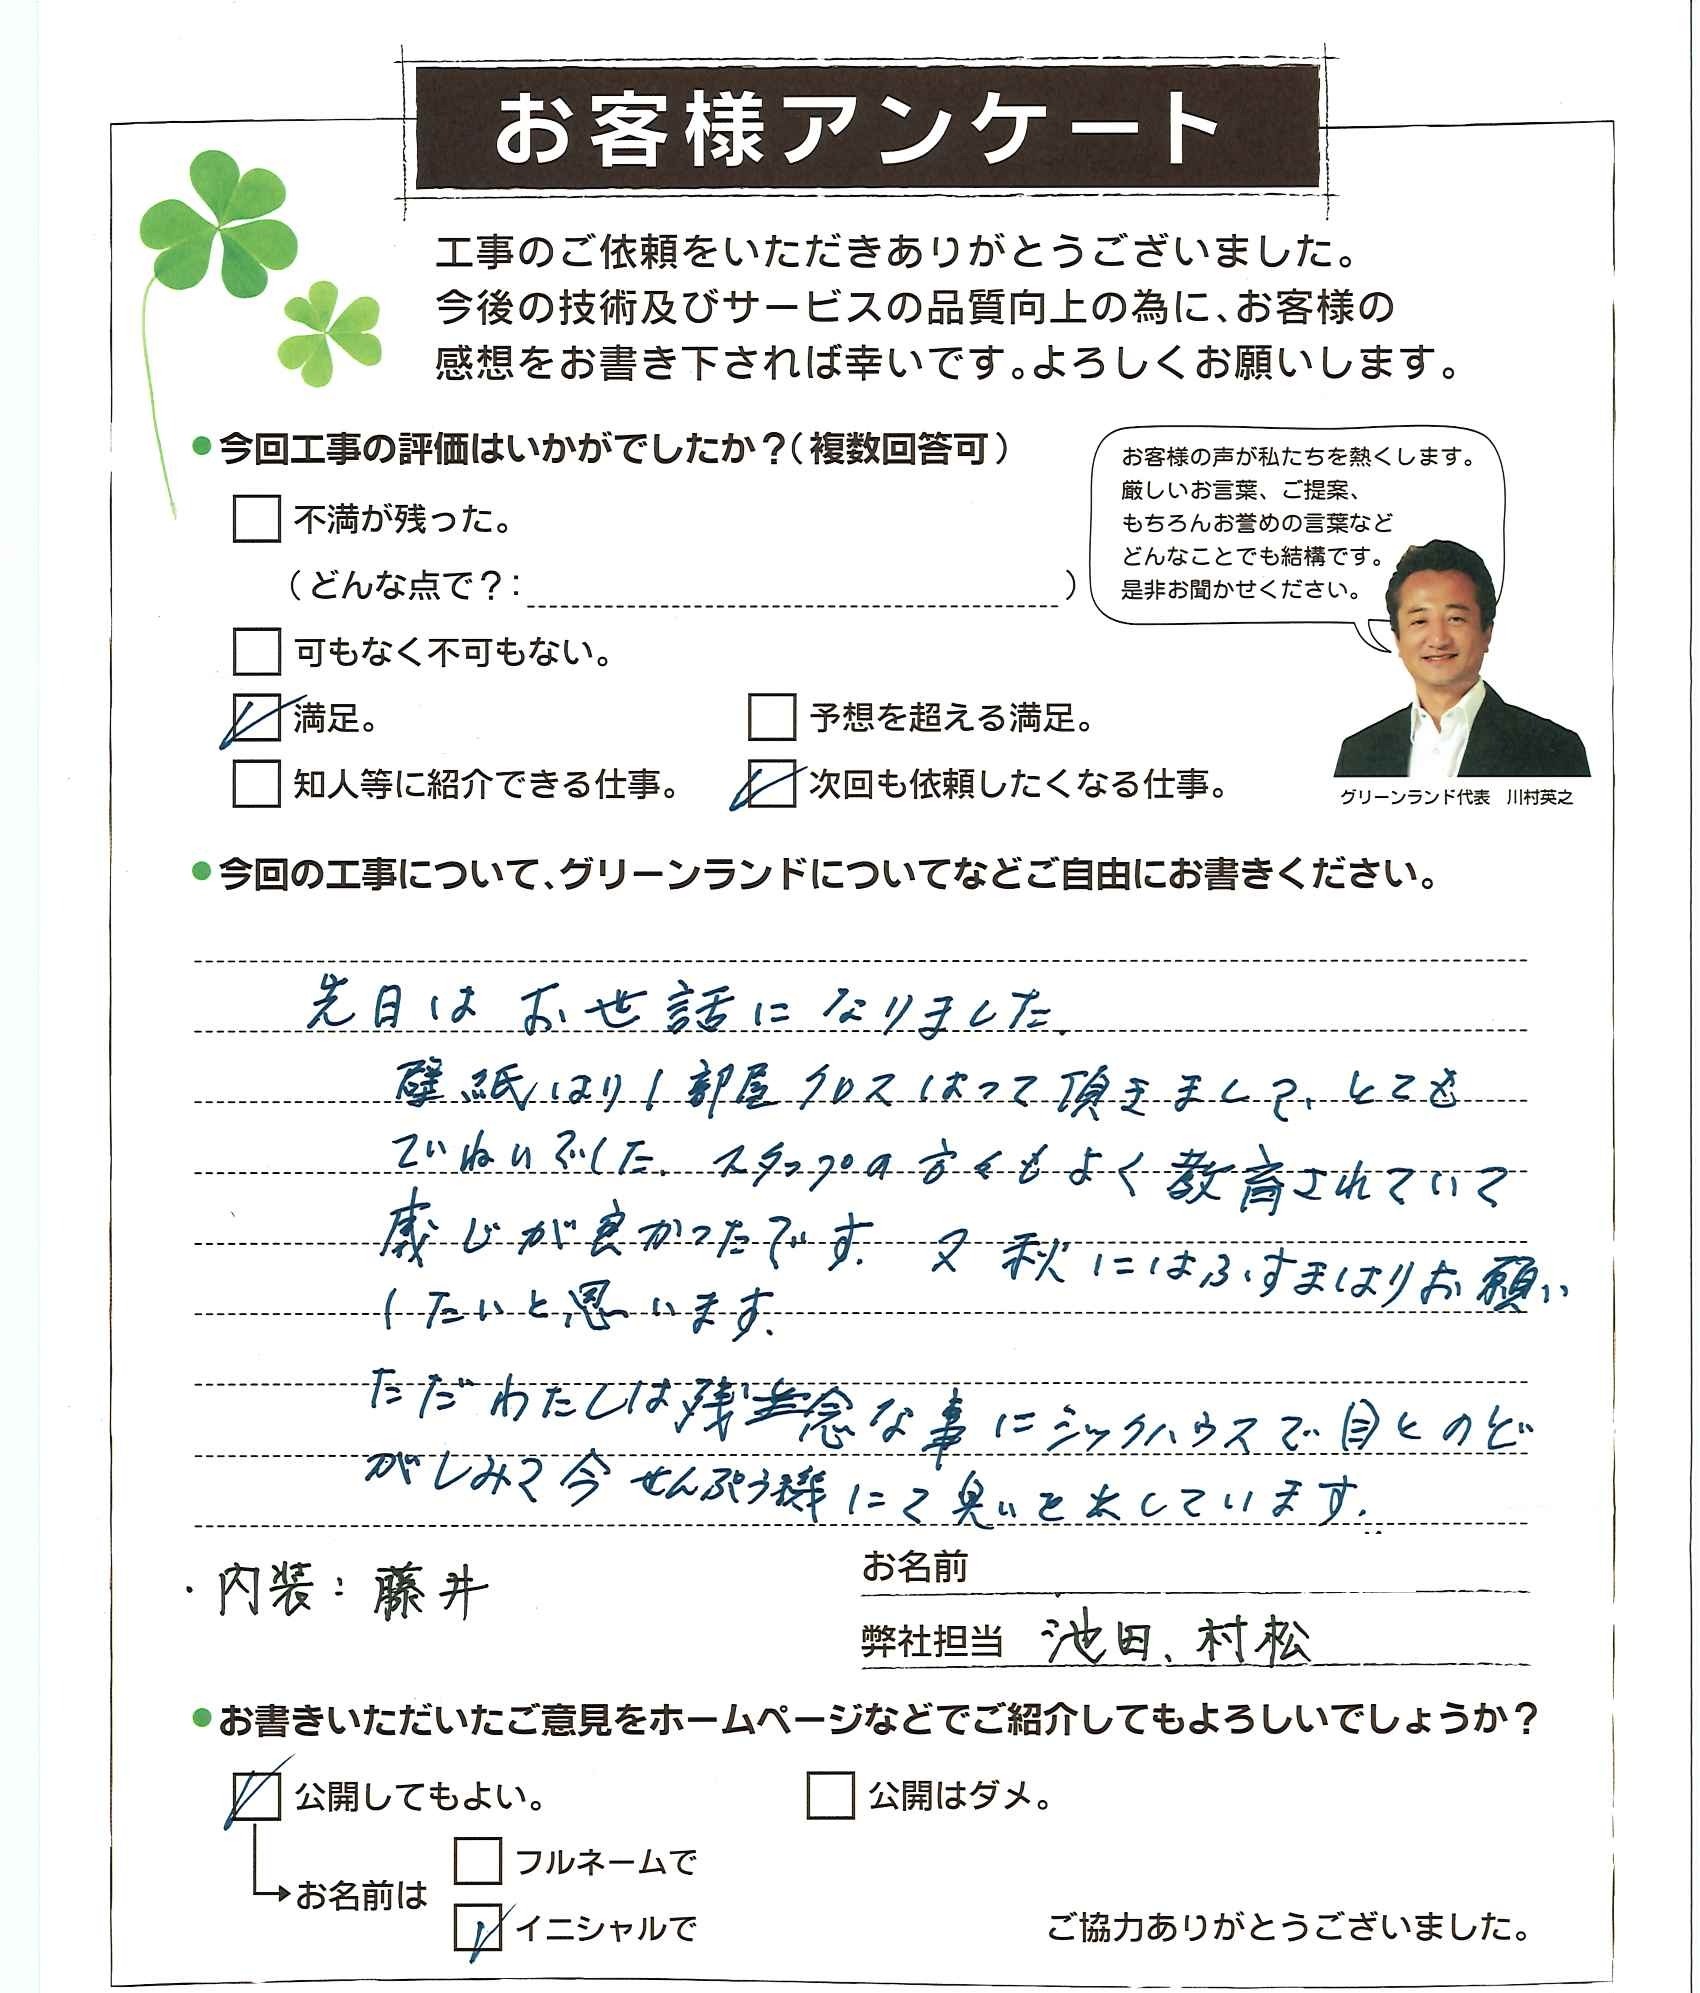 お客様アンケート
工事のご依頼をいただきありがとうございました。
今後の技術及びサービスの品質向上の為に、お客様の
感想をお書き下されれば幸いです。よろしくお願いします。
●今回工事の評価はいかがでしたか？（複数回答可）
不満が残った。
（どんな点で？：　）
可もなく不可もない。
満足。
予想を超える満足。
知人等に紹介できる仕事。
次回も依頼したくなる仕事。
お客様の声が私たちを熱くします。
厳しいお言葉、ご提案、
もちろんお誉めの言葉など
どんなことでも結構です。
是非お聞かせください。
グリーンランド代表　川村英之
●今回の工事について、グリーンランドについてなどご自由にお書きください。
先日はお世話になりました.
壁紙はり1部屋クロスはって頂きまして、とても
ていねいでした. スタッフの方々もよく教育されていて
感じが良かったです. 又秋にはふすまはりお願い
したいと思います.
ただわたしは残念な事にシックハウスで目とのど
がしみて今せんぷう機にて臭いを出しています.
・内装：藤井
お名前
弊社担当　池田、村松
●お書きいただいたご意見をホームページなどでご紹介してもよろしいでしょうか？
公開してもよい。
公開はダメ。
お名前は
フルネームで
イニシャルで
ご協力ありがとうございました。